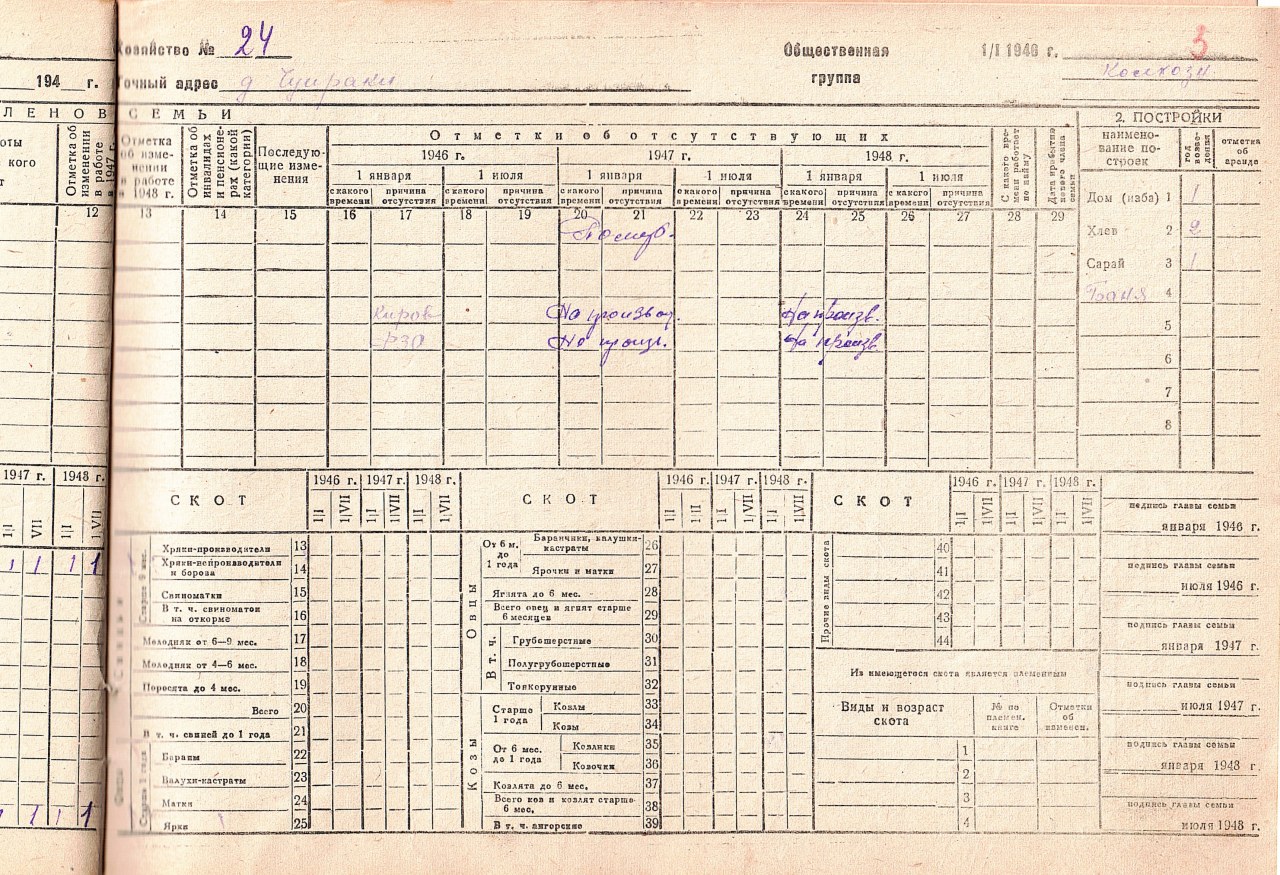 Хозяйство № 24
Общественная группа
1/I 1946 г.
3
Колхозн.
194 г.
Точный адрес д Чураки
ЛЕНОВ СЕМЬИ
оты
кого
т
Отметка об изменении в работе в 1947 г.
Отметка об измене-нии в работе в 1948 г.
Отметка об инвалидах и пенсионе-рах (какой категории)
Последую-щие изме-нения
Отметки об отсутствующих
1946 г. 1947 г. 1948 г.
1 января 1 июля 1 января 1 июля 1 января 1 июля
с какого времени причина отсутствия с какого времени причина отсутствия с какого времени причина отсутствия с какого времени причина отсутствия с какого времени причина отсутствия с какого времени причина отсутствия
С какого вре-мени работает по найму
Дата прибытия нового члена семьи
12 13 14 15 16 17 18 19 20 21 22 23 24 25 26 27 28 29
2. ПОСТРОЙКИ
наимено-вание по-строек
год возве-дения
отметка об аренде
Дом (изба) 1 1
Хлев 2 2
Сарай 3 1
Баня 4
5
6
7
8
Помер.
Киров На производ. На произв.
РЗО На произв. На произв.
1947 г. 1948 г.
1/I VII 1/I 1/VII
1 1 1 1
1 1 1 1
СКОТ
1946 г. 1947 г. 1948 г.
1/I 1/VII 1/I 1/VII 1/I 1/VII
Свиньи
Старше 9 мес.
Хряки-производители 13
Хряки-непроизводители и борова 14
Свиноматки 15
В т. ч. свиноматок на откорме 16
Молодняк от 6—9 мес. 17
Молодняк от 4—6 мес. 18
Поросята до 4 мес. 19
Всего 20
В т. ч. свиней до 1 года 21
Овцы
Старше 1 года
Бараны 22
Валухи-кастраты 23
Матки 24
Ярки 25
СКОТ
1946 г. 1947 г. 1948 г.
1/I 1/VII 1/I 1/VII 1/I 1/VII
Овцы
От 6 м. до 1 года
Баранчики, валушки-кастраты 26
Ярочки и матки 27
Ягнята до 6 мес. 28
Всего овец и ягнят старше 6 месяцев 29
В т. ч.
Грубошерстные 30
Полугрубошерстные 31
Тонкорунные 32
Козы
Старше 1 года
Козлы 33
Козы 34
От 6 мес. до 1 года
Козлики 35
Козочки 36
Козлята до 6 мес. 37
Всего коз и козлят старше 6 мес. 38
В т. ч. ангорские 39
СКОТ
1946 г. 1947 г. 1948 г.
1/I 1/VII 1/I 1/VII 1/I 1/VII
Прочие виды скота
40
41
42
43
44
Из имеющегося скота является племенным
Виды и возраст скота
№ по племен. книге
Отметки об изменен.
1
2
3
4
подпись главы семьи
января 1946 г.
подпись главы семьи
июля 1946 г.
подпись главы семьи
января 1947 г.
подпись главы семьи
июля 1947 г.
подпись главы семьи
января 1948 г.
подпись главы семьи
июля 1948 г.